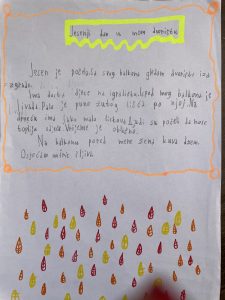 Jesenji dan u mom dvorištu
Jesen je počela. sa svog balkona gledam dvorište iza
zgrade.
Ima dosta djece na igralištu. Ispod mog balkona je
livada. Palo je puno žutog lišća po njoj. Na
drveću ima jako malo listova. Ljudi su počeli da nose
toplija odjela. Vrijeme je oblačno.
Na balkonu pored mene sena kava dzem.
Osjećam miris